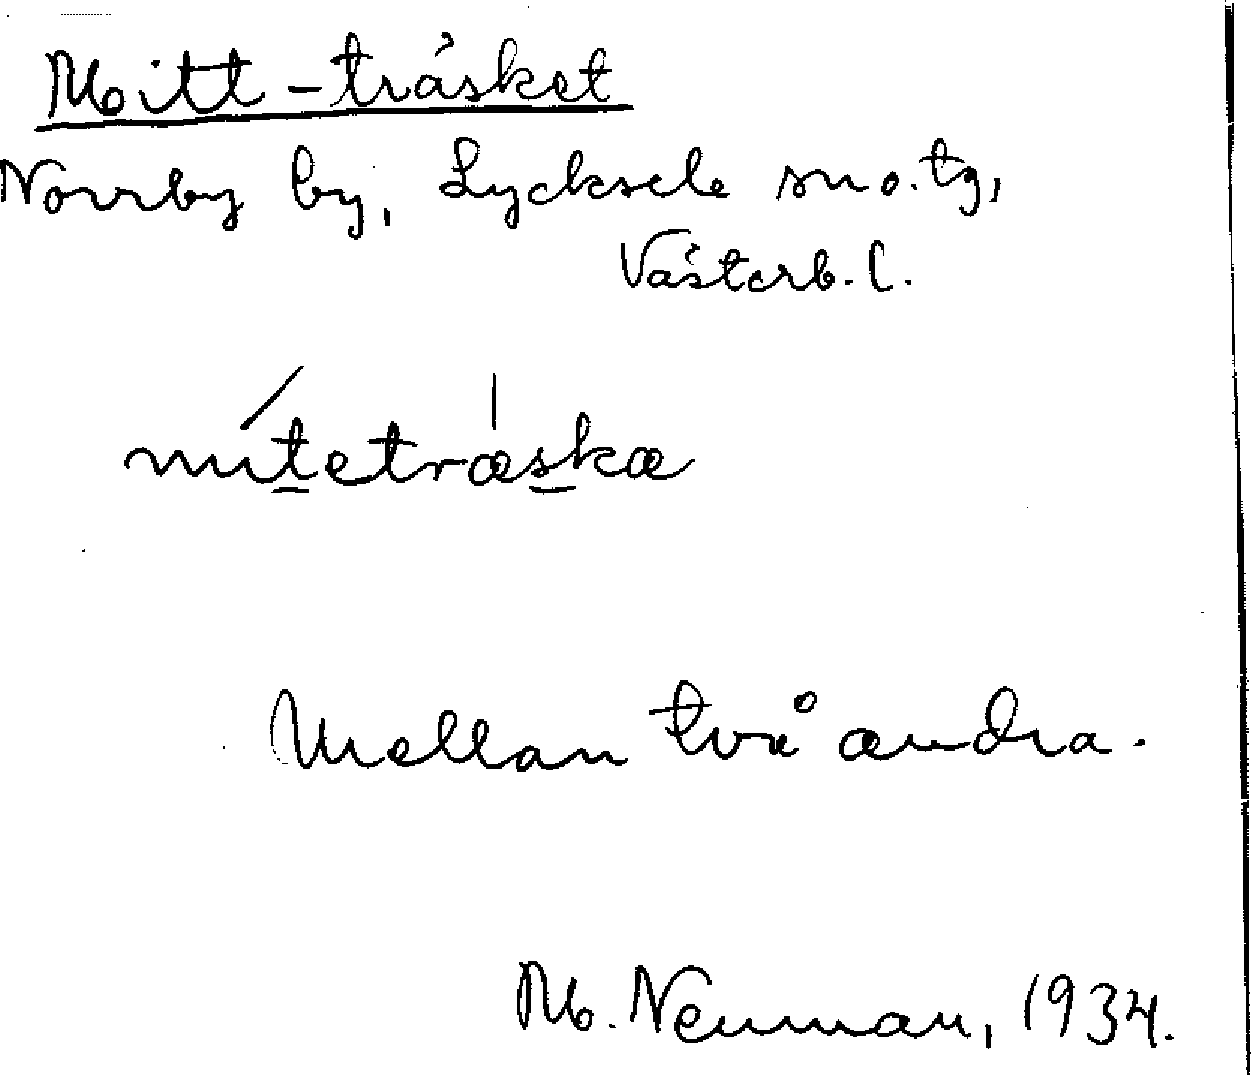 Mitt-träsket
Norrby by, Lycksele sno.tg,
Västerb. l.
mítetrǽskæ
Mellan två andra.
M. Neuman, 1934.